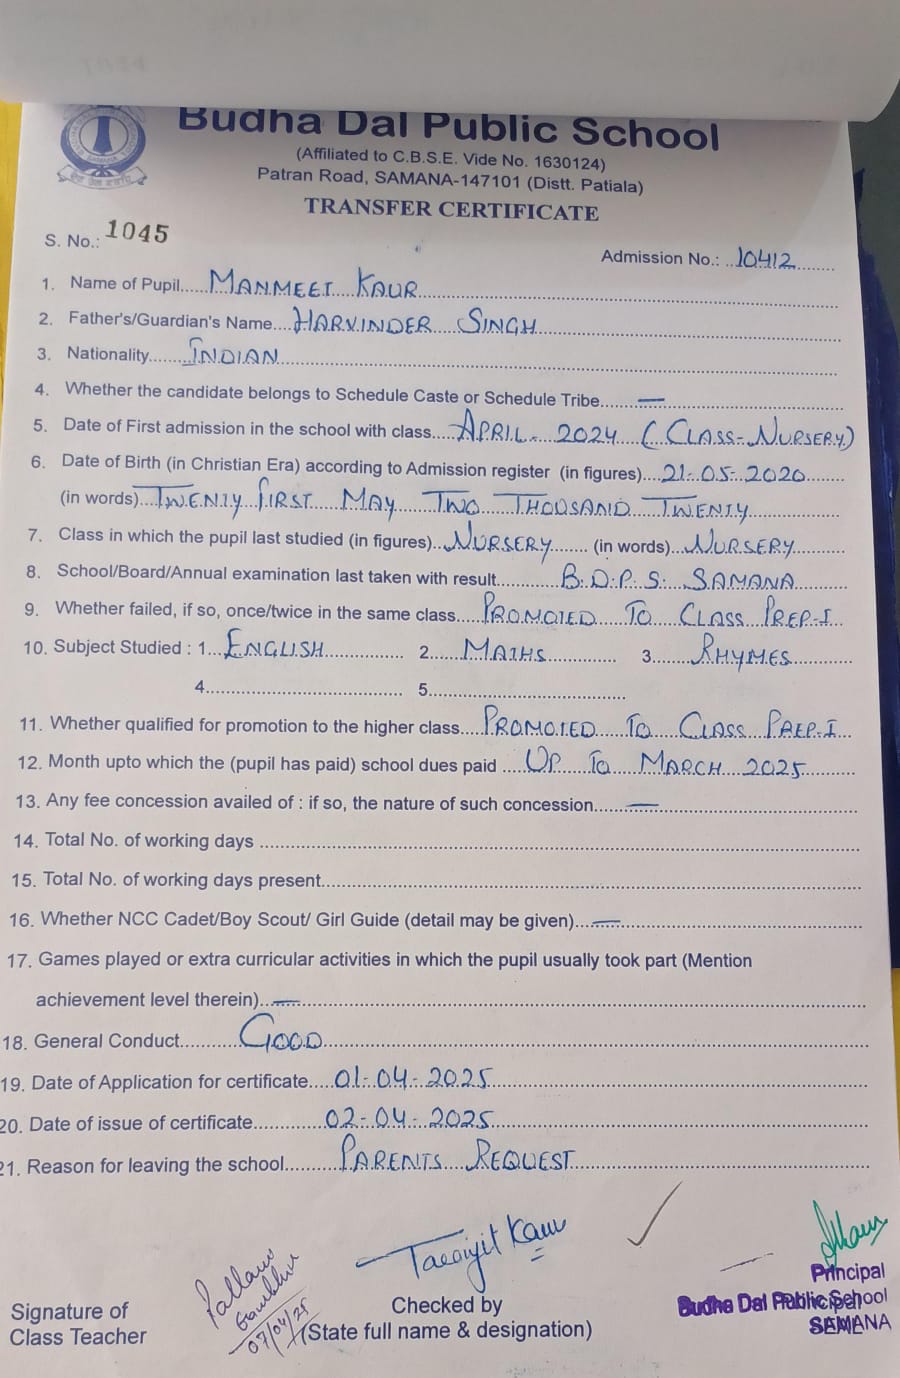 Budha Dal Public School
(Affiliated to C.B.S.E. Vide No. 1630124)
Patran Road, SAMANA-147101 (Distt. Patiala)
TRANSFER CERTIFICATE
S. No.: 1045
Admission No.: 10412
1. Name of Pupil MANMEET KAUR
2. Father's/Guardian's Name HARVINDER SINGH
3. Nationality INDIAN
4. Whether the candidate belongs to Schedule Caste or Schedule Tribe —
5. Date of First admission in the school with class APRIL - 2024 (CLASS-NURSERY)
6. Date of Birth (in Christian Era) according to Admission register (in figures) 21-05-2020
(in words) TWENTY FIRST MAY TWO THOUSAND TWENTY
7. Class in which the pupil last studied (in figures) NURSERY (in words) NURSERY
8. School/Board/Annual examination last taken with result B.D.P.S. SAMANA
9. Whether failed, if so, once/twice in the same class PROMOTED TO CLASS PREP-I
10. Subject Studied : 1 ENGLISH 2 MATHS 3 RHYMES
4 5
11. Whether qualified for promotion to the higher class PROMOTED TO CLASS PREP-I
12. Month upto which the (pupil has paid) school dues paid UP TO MARCH 2025
13. Any fee concession availed of : if so, the nature of such concession —
14. Total No. of working days
15. Total No. of working days present
16. Whether NCC Cadet/Boy Scout/ Girl Guide (detail may be given) —
17. Games played or extra curricular activities in which the pupil usually took part (Mention
achievement level therein) —
18. General Conduct GOOD
19. Date of Application for certificate 01-04-2025
20. Date of issue of certificate 02-04-2025
21. Reason for leaving the school PARENTS REQUEST
Kaur
Pallavi
07/04/25
Signature of
Class Teacher
Checked by
(State full name & designation)
Principal
Budha Dal Public School
SAMANA